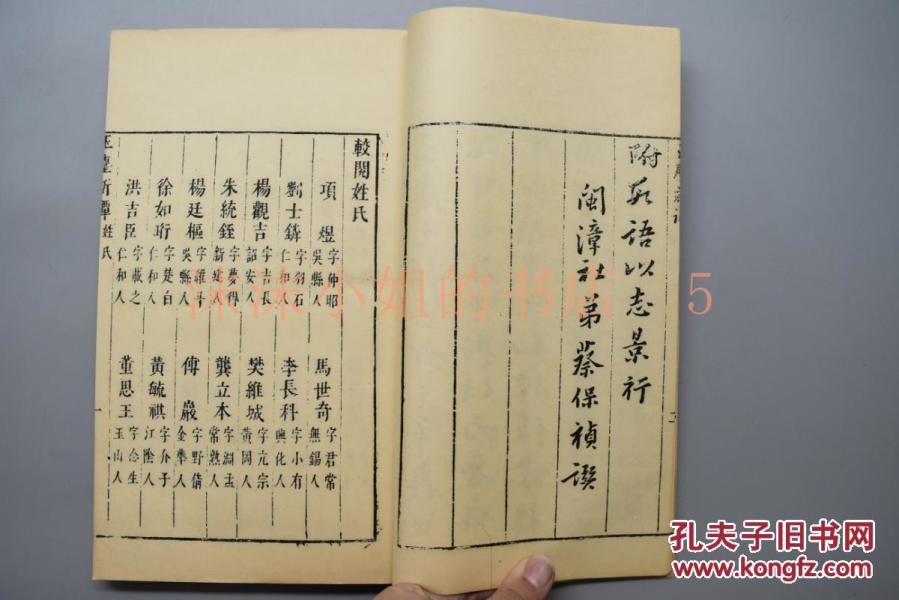 附數語以志景行
閩漳社弟蔡保禎譔
較閱姓氏
項煜 字仲昭 吳縣人
馬世奇 字君常 無錫人
鄭士鏻 仁和人
李長科 字小有 興化人
楊觀吉 字吉長 詔安人
樊維城 字亢宗 黃岡人
朱統銍 字夢得 新建人
龔立本 字淵孟 常熟人
楊廷樞 字維斗 吳縣人
傅巖 字野倩 金華人
徐如珩 字楚白 仁和人
黃毓祺 字介子 江陰人
洪吉臣 字載之 仁和人
董思王 字念生 玉山人
姓氏
一
沫沫小姐的书店 5
孔夫子旧书网
www.kongfz.com